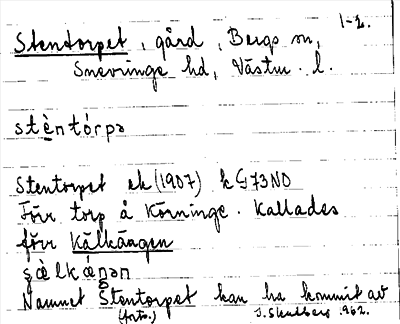 1-2.
Stentorpet, gård, Bergs sn,
Snevringe hd, Västm. l.
stèntórpə
Stentorpet ek (1907) k G 73 NO
Förr torp å Körninge. Kallades
förr Kälkängen
Namnet Stentorpet kan ha kommit av
(forts.)